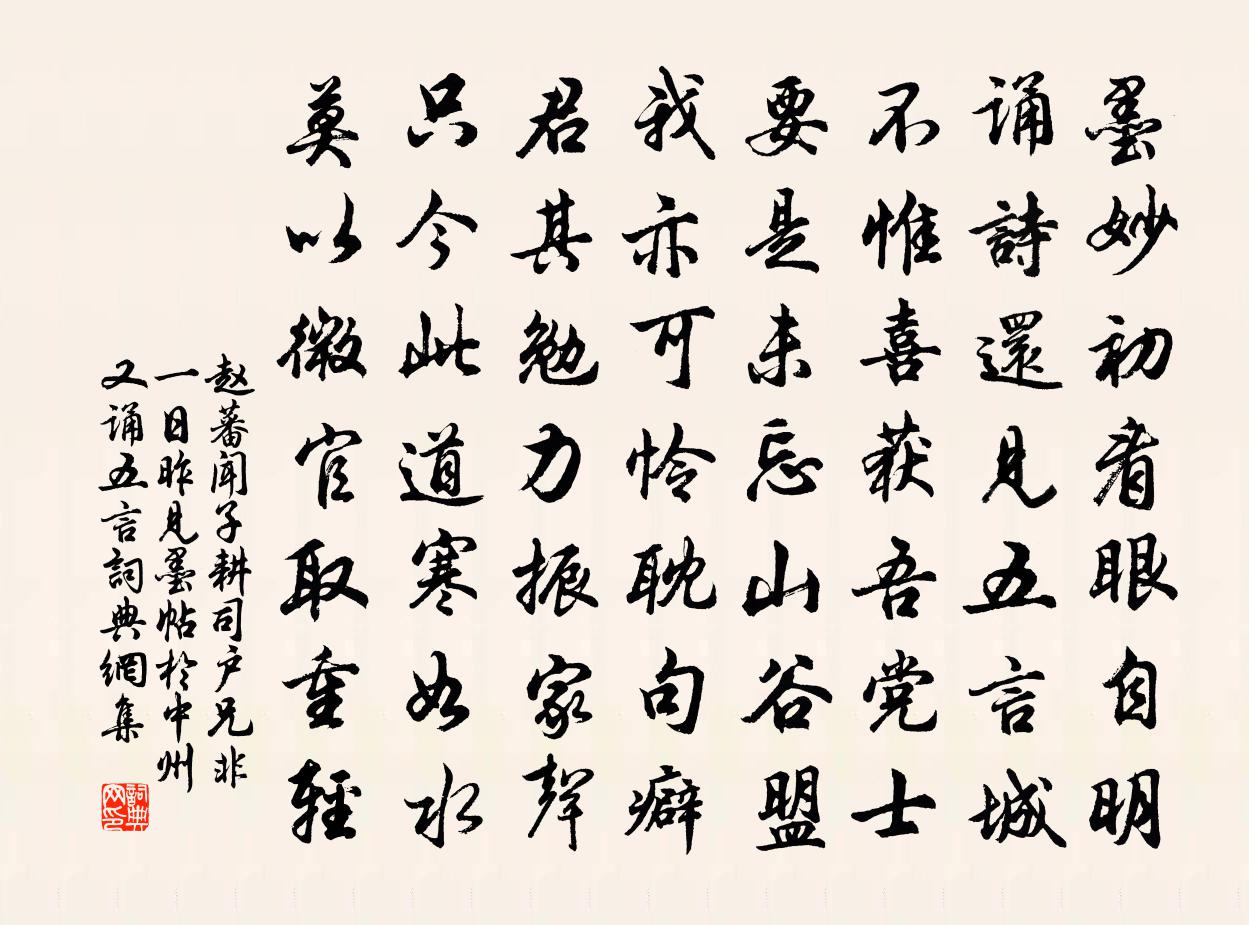 墨妙初看眼自明
诵詩還見五言城
不惟喜获吾党士
要是未忘山谷盟
我亦可怜耽句癖
君其勉力振家聲
只今此道寒如水
莫以微官取重輕
赵蕃闻子耕司户兄非
一日昨见墨帖於中州
又诵五言詞典網集
詞典网印